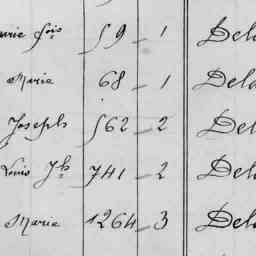 arie fois 59 - 1 Dela
Marie 68 - 1 Dela
Joseph 562 - 2 Dela
Louis Jh 741 - 2 Dela
Marie 1264 - 3 Dela